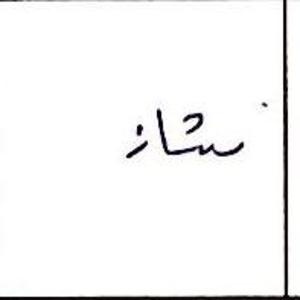 نشاز